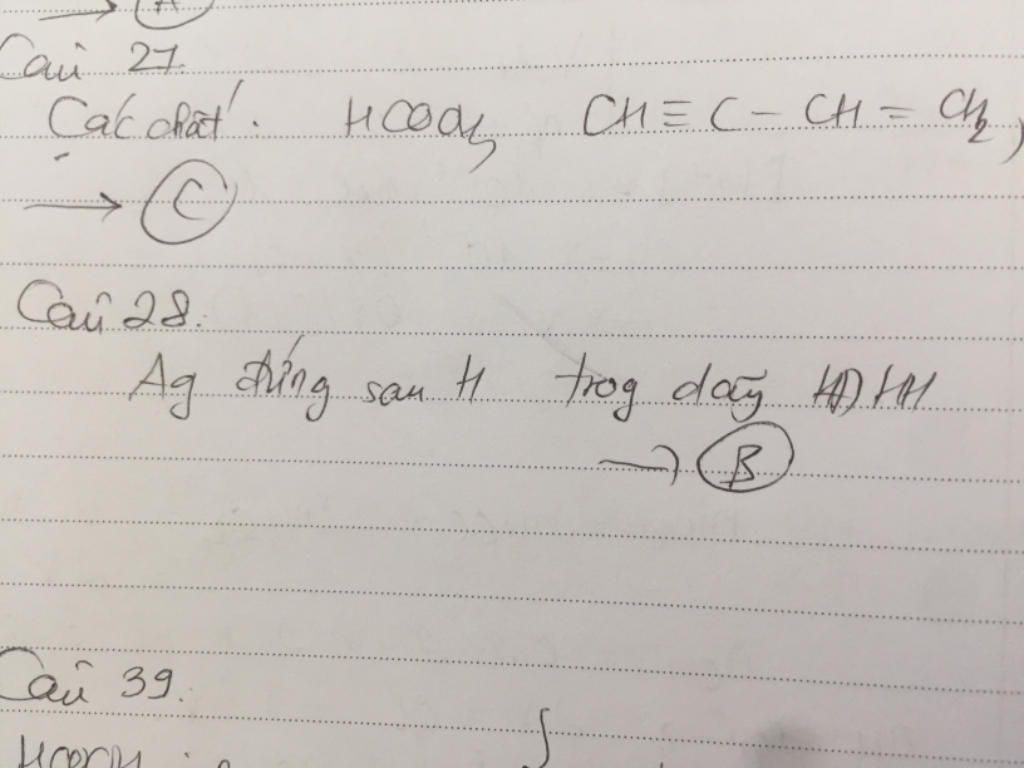 → A
Câu 27.
Các chất: HCOOH, CH≡C-CH=CH2,
→ C
Câu 28:
Ag đứng sau H trog dãy HĐHH
→ B
Câu 39.